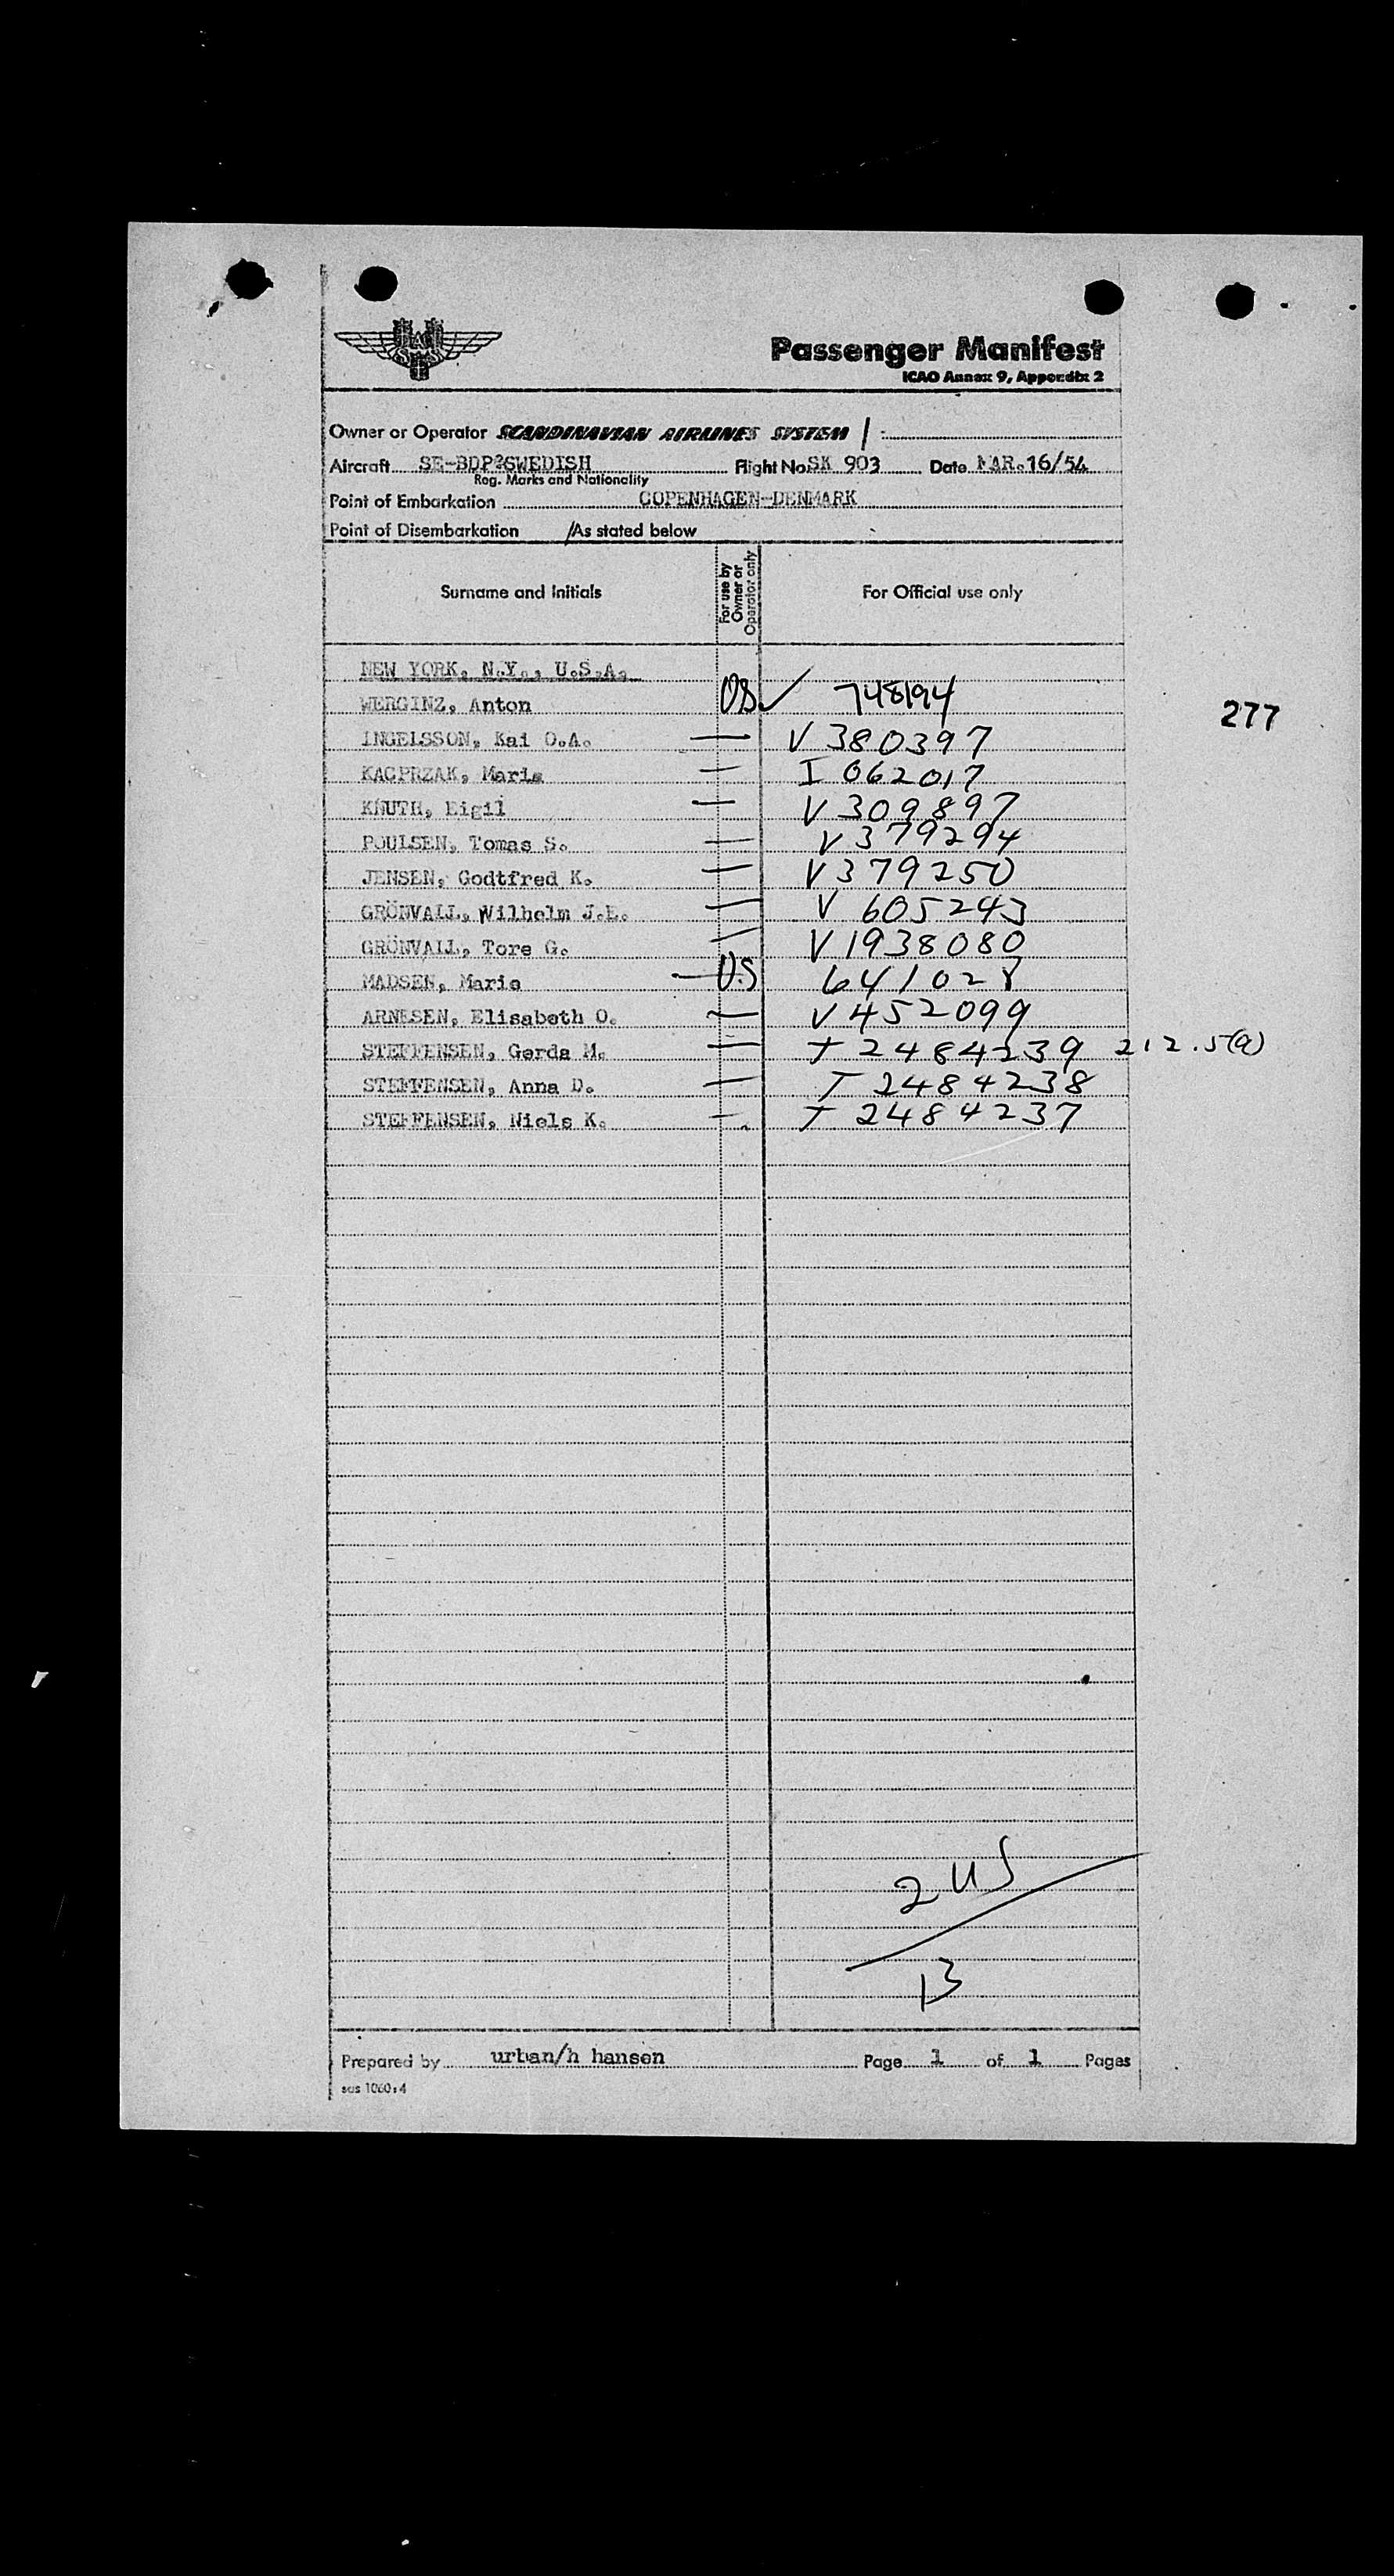 SAS
Passenger Manifest
ICAO Annex 9, Appendix 2
Owner or Operator SCANDINAVIAN AIRLINES SYSTEM /
Aircraft SE-BDP?SWEDISH Flight No SK 903 Date MAR.16/54
Reg. Marks and Nationality
Point of Embarkation COPENHAGEN-DENMARK
Point of Disembarkation /As stated below
Surname and Initials For use by Owner or Operator only For Official use only
NEW YORK, N.Y., U.S.A.
WERGINZ, Anton US ✓ 748194
277
INGELSSON, Kai O.A. — V 380397
KACPRZAK, Maria — I 062017
KNUTH, Eigil — V 309897
POULSEN, Tomas S. — V 379294
JENSEN, Godtfred K. — V 379250
GRÖNVALL, Wilhelm J.E. — V 605243
GRÖNVALL, Tore G. — V 1938080
MADSEN, Marie — U.S 641028
ARNESEN, Elisabeth O. — V 452099
STEFFENSEN, Gerda M. — T 2484239 212.5(a)
STEFFENSEN, Anna D. — T 2484238
STEFFENSEN, Niels K. — T 2484237
2 US
13
Prepared by urban/h hansen Page 1 of 1 Pages
sas 1060:4